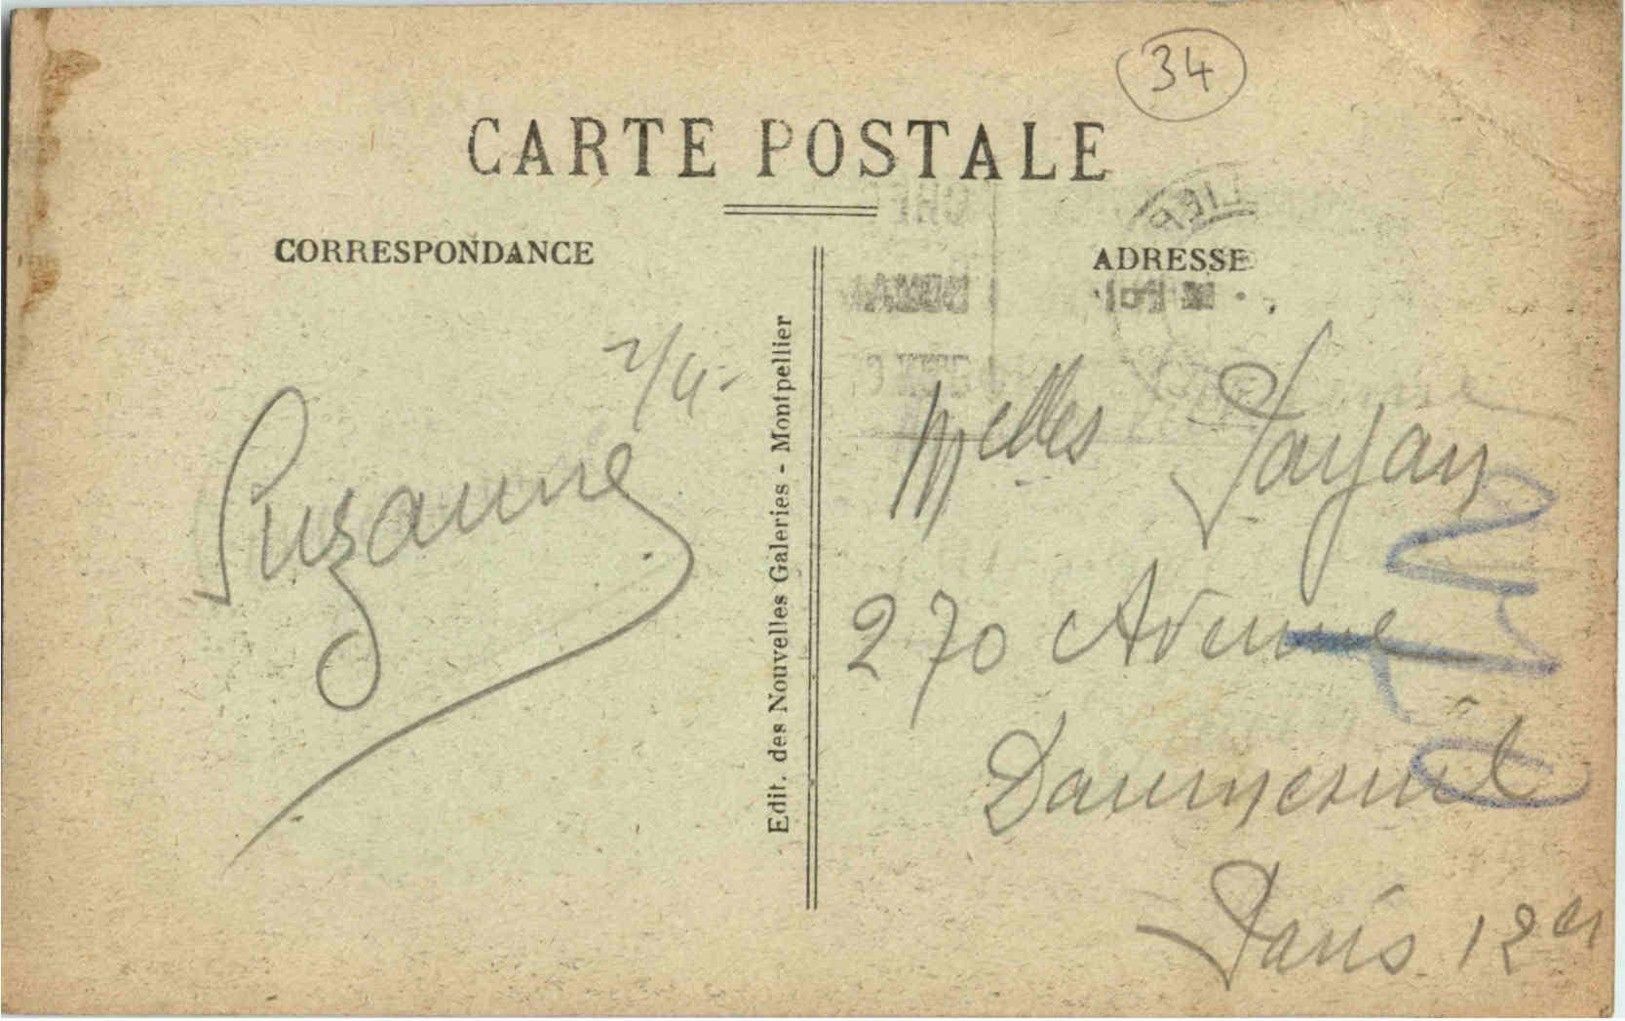 34
CARTE POSTALE
CORRESPONDANCE
ADRESSE
2/4-
Suzanne
Edit. des Nouvelles Galeries - Montpellier
Melles Payan
270 Avenue
Daumesnil
Paris 12